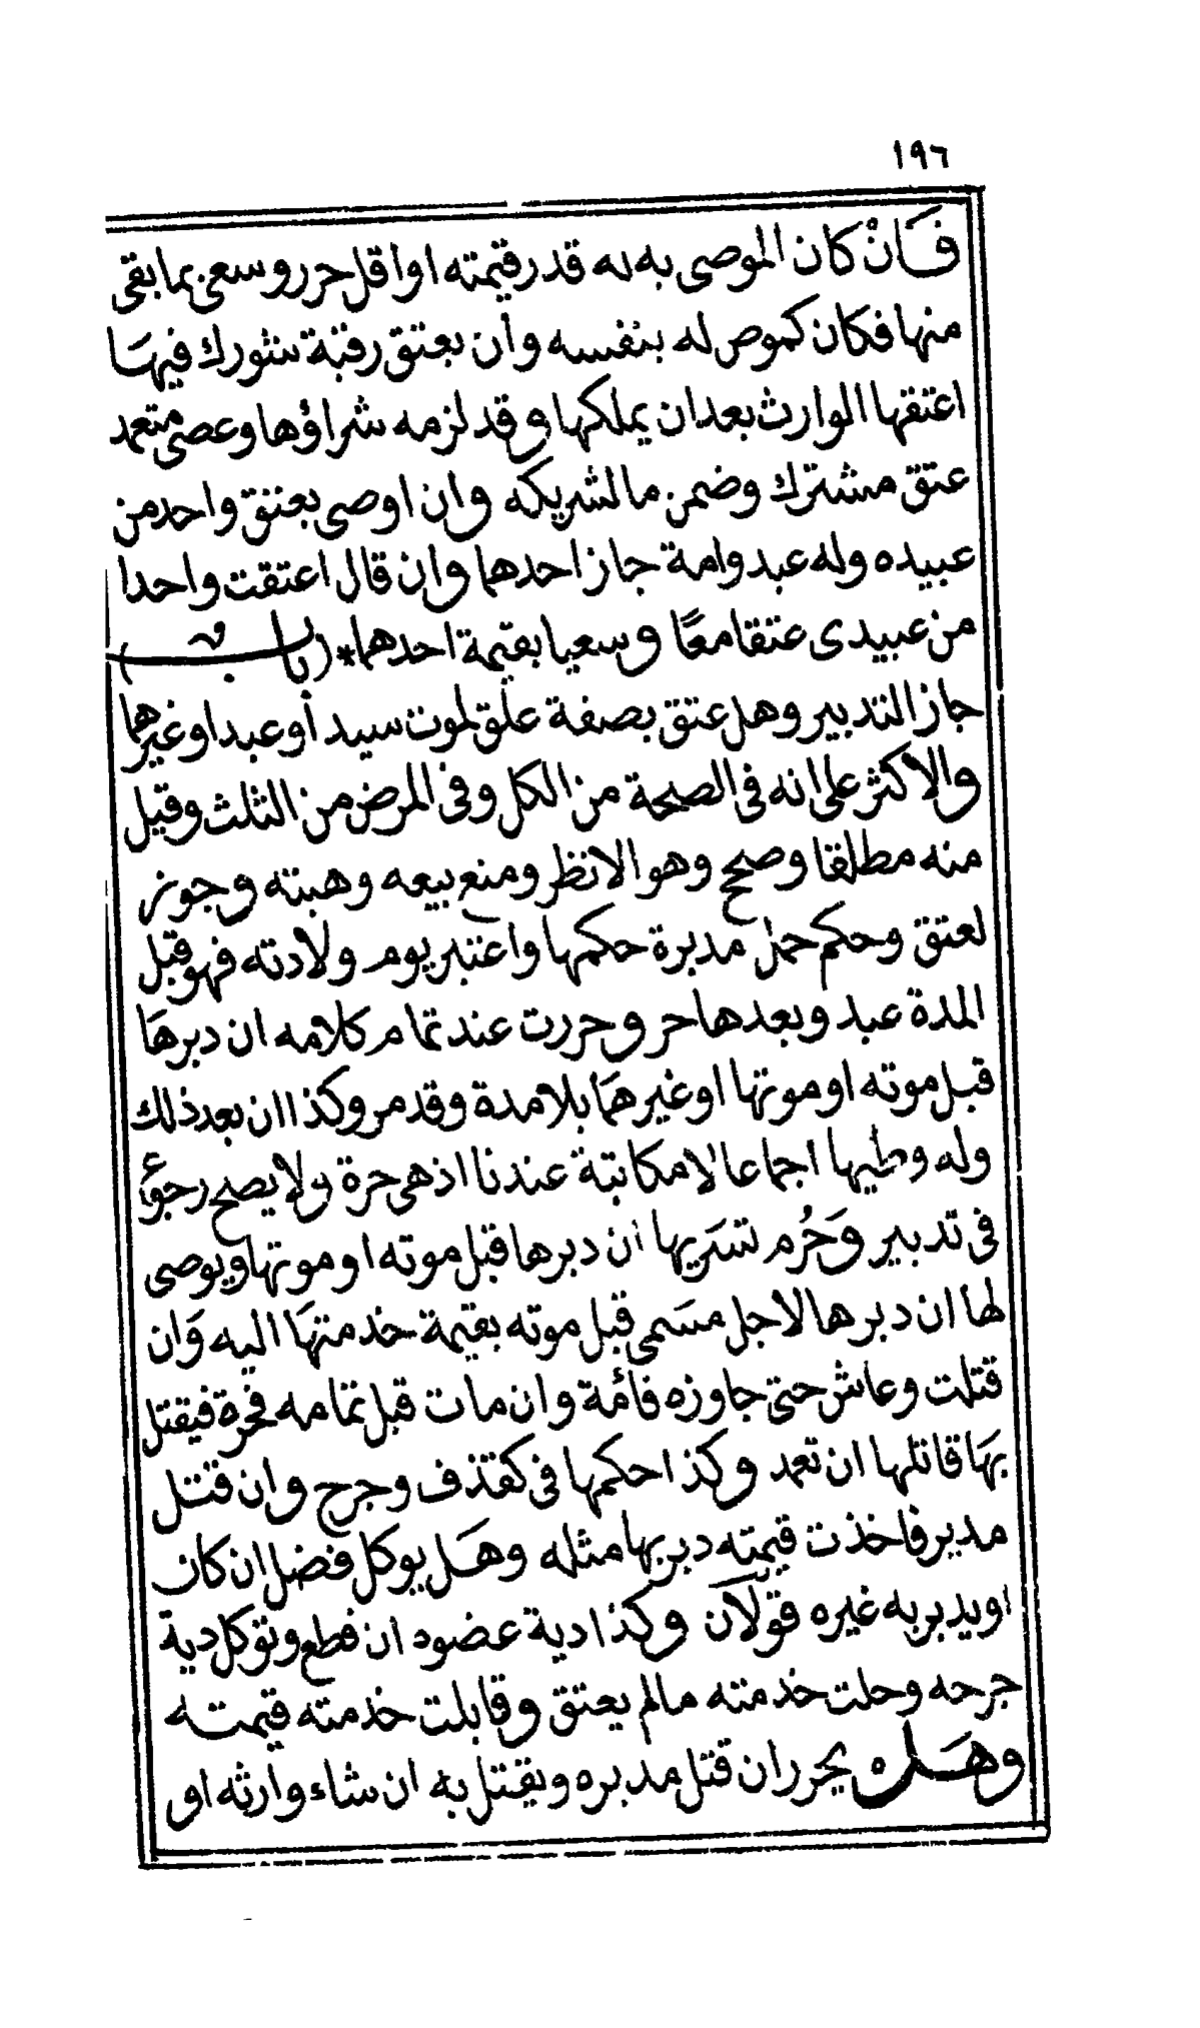 ١٩٦
فَانْ كان الموصى به له قدر قيمته او اقل حرر وسعى بما بقى
منها فكان كموص له بنفسه وان بعتق رقبة شورك فيها
اعتقها الوارث بعد ان يملكها وقد لزمه شراؤها وعصى متعمد
عتق مشترك وضمن ما لشريكه وان اوصى بعتق واحد من
عبيده وله عبد وامة جاز احدهما وان قال اعتقت واحدا
من عبيدى عتقا معًا وسعيا بقيمة احدهما * (باب)
جاز التدبير وهل عتق بصفة علق لموت سيد أو عبد او غيرهما
والاكثر على انه فى الصحة من الكل وفى المرض من الثلث وقيل
منه مطلقا وصحح وهو الانظر ومنع بيعه وهبته وجوز
لعتق وحكم حمل مدبرة حكمها واعتبر يوم ولادته فهو قبل
المدة عبد وبعدها حر وحررت عند تمام كلامه ان دبرها
قبل موته او موتها او غيرهما بلا مدة وقد مر وكذا ان بعد ذلك
وله وطيها اجماعا لا مكاتبة عندنا اذ هى حرة ولا يصح رجوع
فى تدبير وَحُرم تسَريها ان دبرها قبل موته او موتها ويوصى
لها ان دبرها لاجل مسَمى قبل موته بقيمة خدمتهَا اليه وَان
قتلت وعاش حتى جاوزه فائمة وان مات قبل تمامه فحرة فيقتل
بهَا قاتلها ان تعمد وكذا حكمها فى كقذف وجرح وان قتل
مدبر فاخذت قيمته دبر بها مثله وهَل يوكل فضل ان كان
او يدبر به غيره قولآن وكذا دية عضوه ان قطع وتوكل دية
جرحه وحلت خدمته مالم يعتق وقابلت خدمته قيمته
وهَل يحرر ان قتل مدبره ويقتل به ان شاء وارثه او